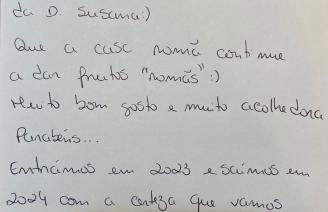 da D. Susana:)
Que a casa romã continue
a dar frutos "romãs":)
Muito bom gosto e muito acolhedora
Parabéns...
Entrámos em 2023 e saímos em
2024 com a certeza que vamos